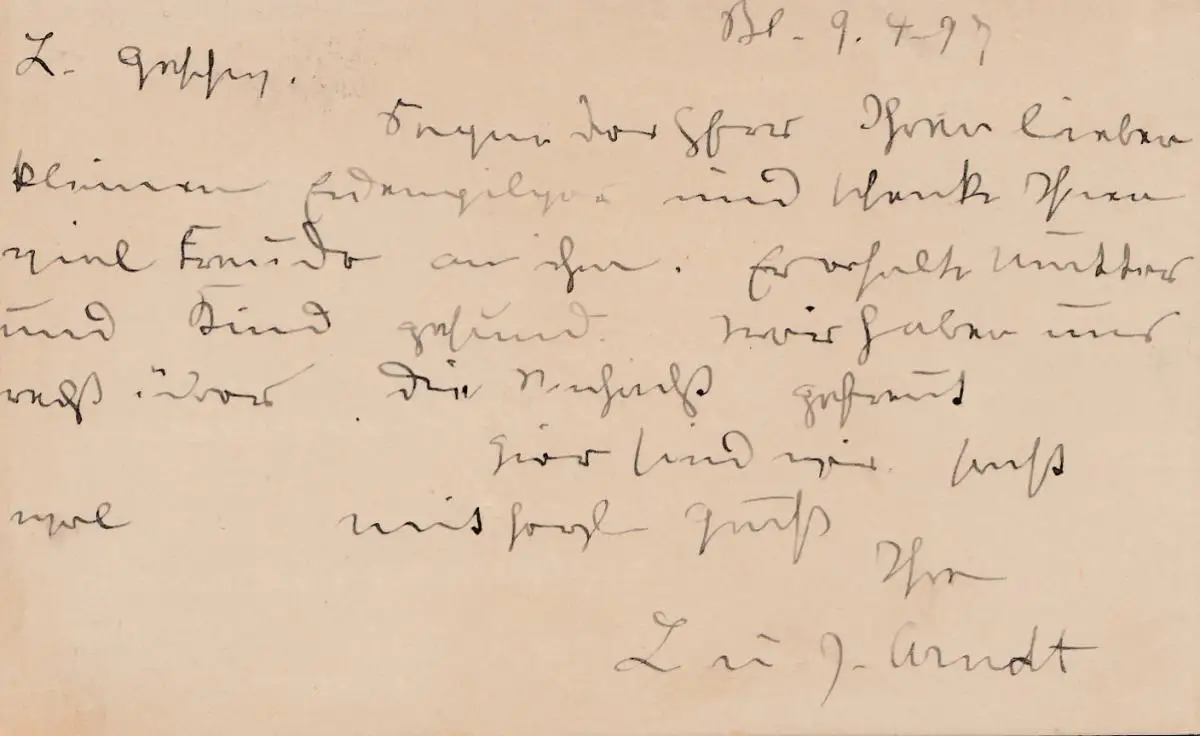 Bl. 9.4.97
L. Geschw.
Segne der Herr Ihren lieben
kleinen Erdenpilger und schenke Ihnen
viel Freude an ihm. Er erhalte Mutter
und Kind gesund. Wir haben uns
recht über die Nachricht gefreut
Hier sind wir recht
wol mit herzl Gruß
Ihre
L u J. Arndt